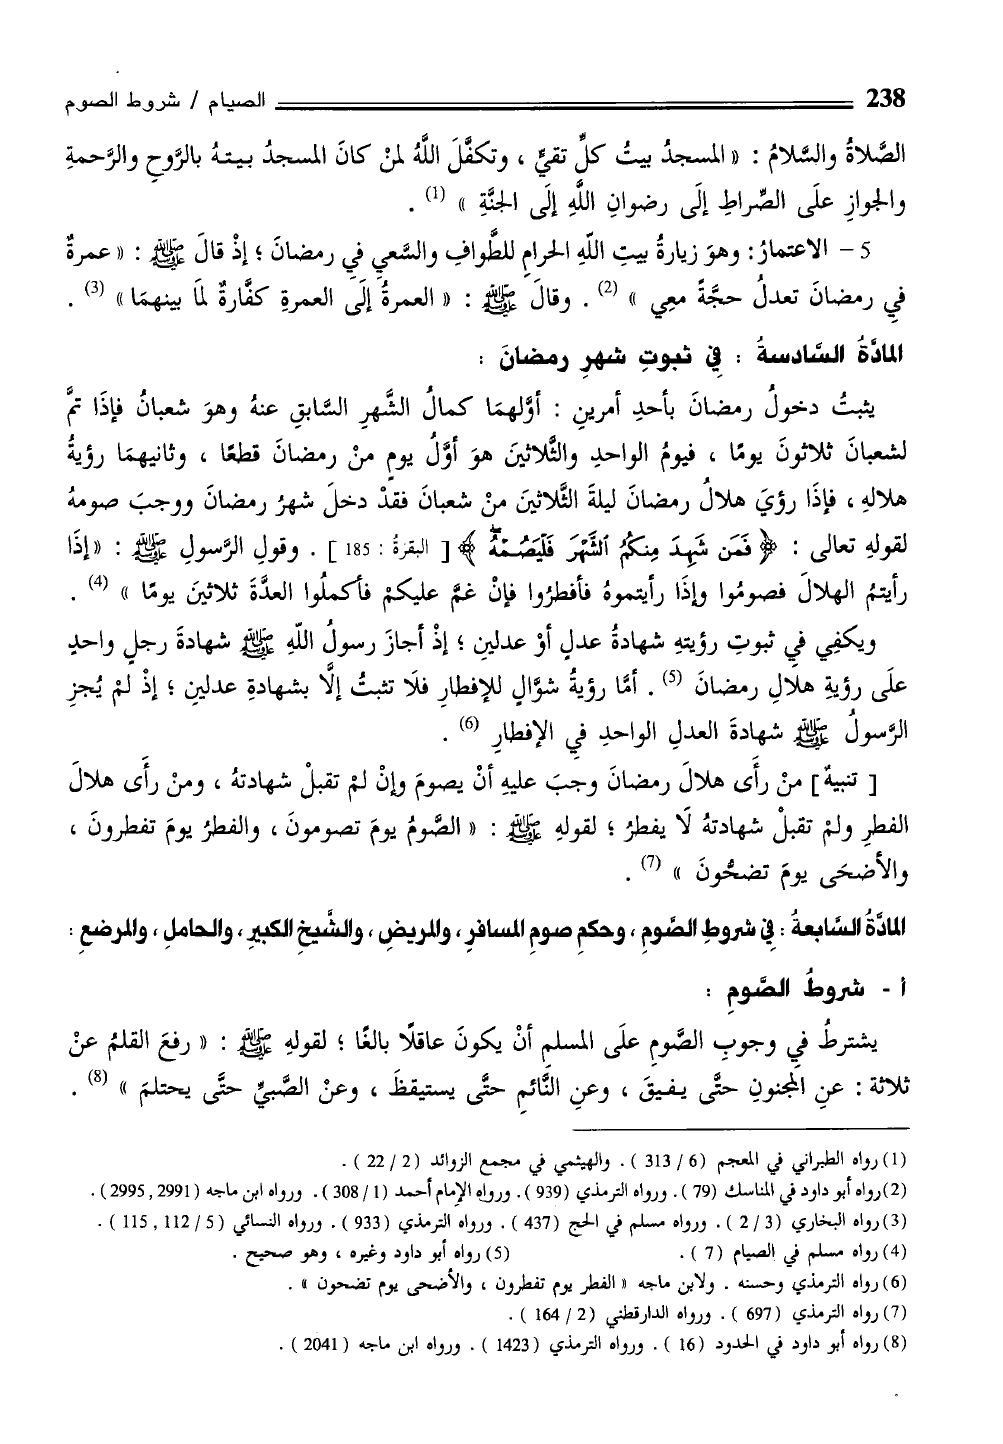 238 الصيام / شروط الصوم
الصَّلاةُ والسَّلامُ : « المسجدُ بيتُ كلِّ تقيٍّ ، وتكفَّلَ اللَّهُ لمنْ كانَ المسجدُ بيتهُ بالرَّوحِ والرَّحمةِ
والجوازِ علَى الصِّراطِ إلَى رضوانِ اللَّهِ إلَى الجنَّةِ » (1) .
5 – الاعتمارُ : وهوَ زيارةُ بيتِ اللَّهِ الحرامِ للطَّوافِ والسَّعيِ في رمضانَ ؛ إذْ قالَ ﷺ : « عمرةٌ
في رمضانَ تعدلُ حجَّةً معِي » (2) . وقالَ ﷺ : « العمرةُ إلَى العمرةِ كفَّارةٌ لمَا بينهمَا » (3) .
المادَّةُ السَّادسةُ : في ثبوتِ شهرِ رمضانَ :
يثبتُ دخولُ رمضانَ بأحدِ أمرينِ : أوَّلهمَا كمالُ الشَّهرِ السَّابقِ عنهُ وهوَ شعبانُ فإذَا تمَّ
لشعبانَ ثلاثونَ يومًا ، فيومُ الواحدِ والثَّلاثينَ هوَ أوَّلُ يومٍ منْ رمضانَ قطعًا ، وثانيهمَا رؤيةُ
هلالهِ ، فإذَا رؤيَ هلالُ رمضانَ ليلةَ الثَّلاثينَ منْ شعبانَ فقدْ دخلَ شهرُ رمضانَ ووجبَ صومهُ
لقولهِ تعالى : ﴿ فَمَن شَهِدَ مِنكُمُ ٱلشَّهْرَ فَلْيَصُمْهُ ﴾ [ البقرةُ : 185 ] . وقولِ الرَّسولِ ﷺ : « إذَا
رأيتمُ الهلالَ فصومُوا وإذَا رأيتموهُ فأفطرُوا فإنْ غمَّ عليكمْ فأكملُوا العدَّةَ ثلاثينَ يومًا » (4) .
ويكفِي في ثبوتِ رؤيتهِ شهادةُ عدلٍ أوْ عدلينِ ؛ إذْ أجازَ رسولُ اللَّهِ ﷺ شهادةَ رجلٍ واحدٍ
علَى رؤيةِ هلالِ رمضانَ (5) . أمَّا رؤيةُ شوَّالٍ للإفطارِ فلَا تثبتُ إلَّا بشهادةِ عدلينِ ؛ إذْ لمْ يُجزِ
الرَّسولُ ﷺ شهادةَ العدلِ الواحدِ في الإفطارِ (6) .
[ تنبيهٌ ] منْ رأَى هلالَ رمضانَ وجبَ عليهِ أنْ يصومَ وإنْ لمْ تقبلْ شهادتهُ ، ومنْ رأَى هلالَ
الفطرِ ولمْ تقبلْ شهادتهُ لَا يفطرُ ؛ لقولهِ ﷺ : « الصَّومُ يومَ تصومونَ ، والفطرُ يومَ تفطرونَ ،
والأضحَى يومَ تضحُّونَ » (7) .
المادَّةُ السَّابعةُ : في شروطِ الصَّومِ ، وحكمِ صومِ المسافرِ ، والمريضِ ، والشَّيخِ الكبيرِ ، والحاملِ ، والمرضعِ :
أ - شروطُ الصَّومِ :
يشترطُ في وجوبِ الصَّومِ علَى المسلمِ أنْ يكونَ عاقلًا بالغًا ؛ لقولهِ ﷺ : « رفعَ القلمُ عنْ
ثلاثة : عنِ المجنونِ حتَّى يفيقَ ، وعنِ النَّائمِ حتَّى يستيقظَ ، وعنْ الصَّبيِّ حتَّى يحتلمَ » (8) .
(1) رواه الطبراني في المعجم ( 6 / 313 ) . والهيثمي في مجمع الزوائد ( 2 / 22 ) .
(2) رواه أبو داود في المناسك ( 79 ) . ورواه الترمذي ( 939 ) . ورواه الإمام أحمد ( 1 / 308 ) . ورواه ابن ماجه ( 2991 , 2995 ) .
(3) رواه البخاري ( 3 / 2 ) . ورواه مسلم في الحج ( 437 ) . ورواه الترمذي ( 933 ) . ورواه النسائي ( 5 / 112 , 115 ) .
(4) رواه مسلم في الصيام ( 7 ) . (5) رواه أبو داود وغيره ، وهو صحيح .
(6) رواه الترمذي وحسنه . ولابن ماجه « الفطر يوم تفطرون ، والأضحى يوم تضحون » .
(7) رواه الترمذي ( 697 ) . ورواه الدارقطني ( 2 / 164 ) .
(8) رواه أبو داود في الحدود ( 16 ) . ورواه الترمذي ( 1423 ) . ورواه ابن ماجه ( 2041 ) .